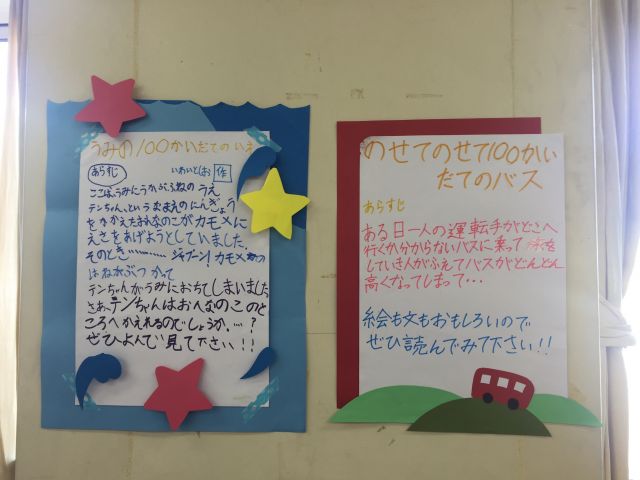 うみの100かいだてのいえ
あらすじ いわいとしお 作
ここは、うみにうかぶ、ふねのうえ
テンちゃん、というなまえのにんぎょう
をかかえたおんなのこがカモメに
えさをあげようとしていました。
そのとき………… ジャブーン！カモメ
はねがぶつかって
テンちゃんがうみにおちてしまいました
さあ、テンちゃんはおんなのこのと
ころへかえれるのでしょうか…？
ぜひよんで見て下さい！！
のせてのせて100かい
だてのバス
あらすじ
ある日一人の運転手がどこへ
行くか分からないバスに乗って
していき人がふえてバスがどんどん
高くなってしまって…
絵も文もおもしろいので
ぜひ読んでみて下さい！！